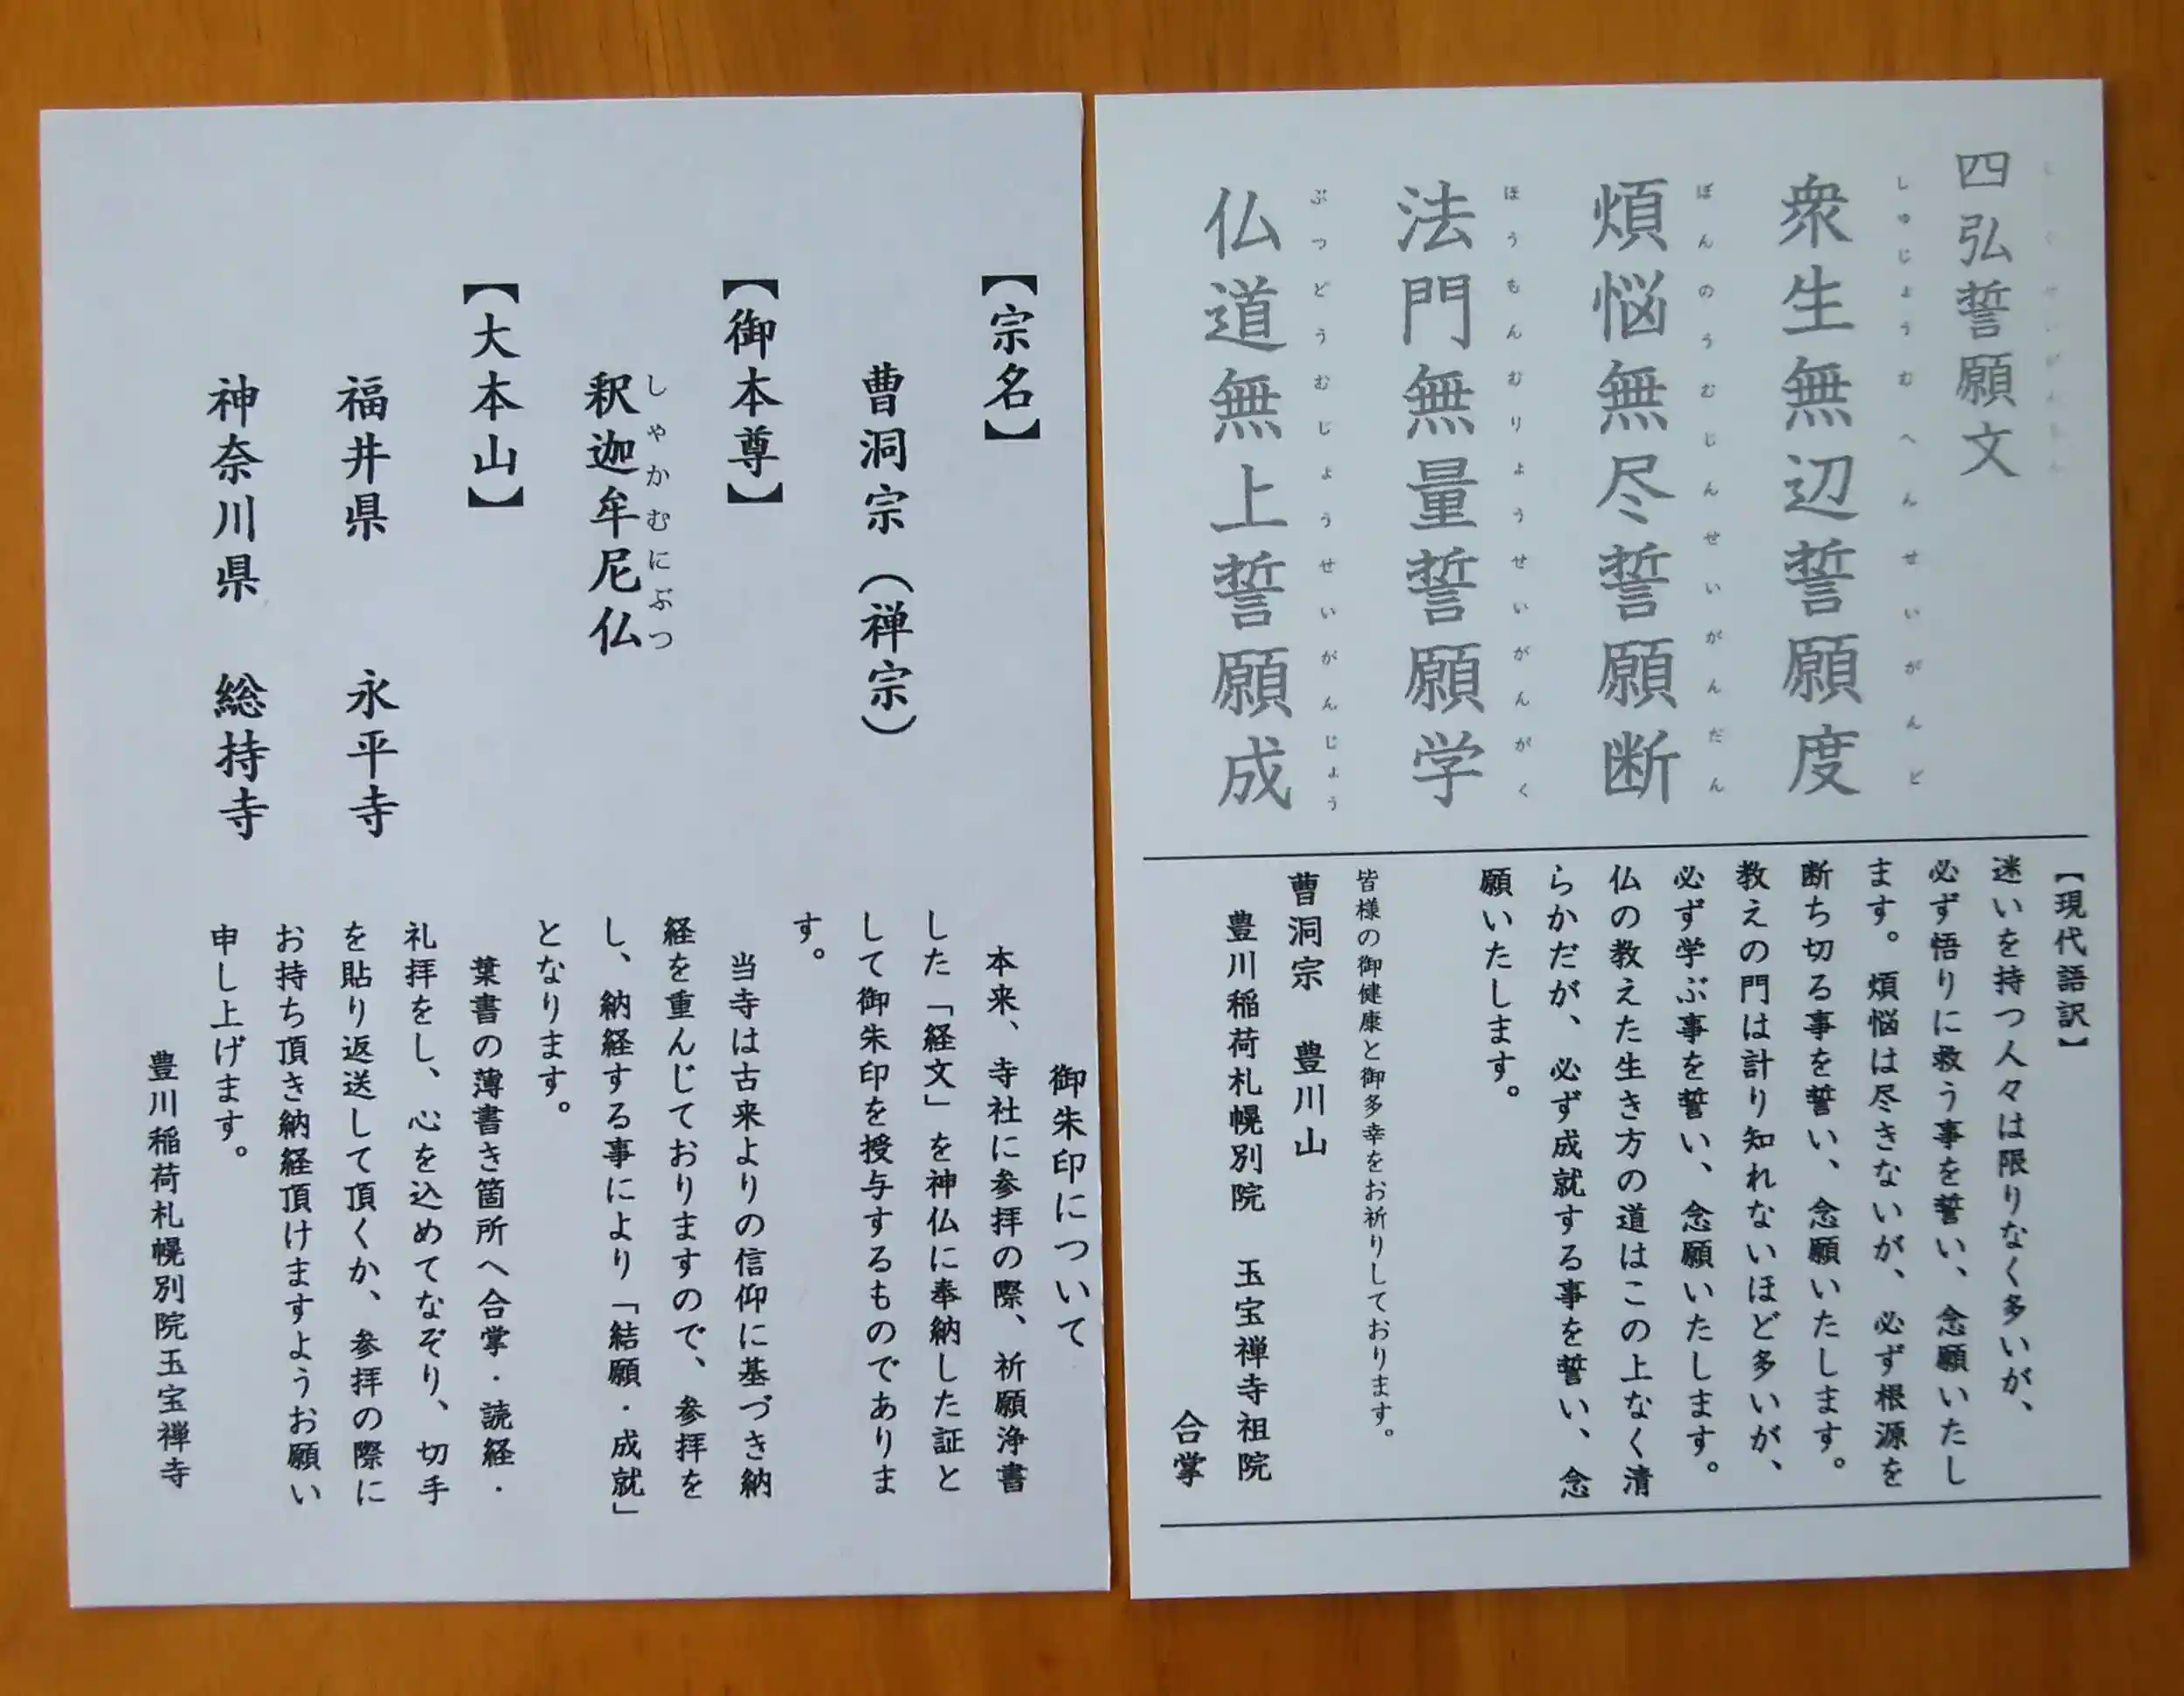 四弘誓願文
衆生無辺誓願度
しゅじょうむへんせいがんど
煩悩無尽誓願断
ぼんのうむじんせいがんだん
法門無量誓願学
ほうもんむりょうせいがんがく
仏道無上誓願成
ぶつどうむじょうせいがんじょう
【現代語訳】
迷いを持つ人々は限りなく多いが、
必ず悟りに救う事を誓い、念願いたし
ます。煩悩は尽きないが、必ず根源を
断ち切る事を誓い、念願いたします。
教えの門は計り知れないほど多いが、
必ず学ぶ事を誓い、念願いたします。
仏の教えた生き方の道はこの上なく清
らかだが、必ず成就する事を誓い、念
願いたします。
皆様の御健康と御多幸をお祈りしております。
曹洞宗 豊川山
豊川稲荷札幌別院 玉宝禅寺祖院
合掌
【宗名】
曹洞宗（禅宗）
【御本尊】
釈迦牟尼仏
しゃかむにぶつ
【大本山】
福井県 永平寺
神奈川県 総持寺
御朱印について
本来、寺社に参拝の際、祈願浄書
した「経文」を神仏に奉納した証と
して御朱印を授与するものでありま
す。
当寺は古来よりの信仰に基づき納
経を重んじておりますので、参拝を
し、納経する事により「結願・成就」
となります。
葉書の薄書き箇所へ合掌・読経・
礼拝をし、心を込めてなぞり、切手
を貼り返送して頂くか、参拝の際に
お持ち頂き納経頂けますようお願い
申し上げます。
豊川稲荷札幌別院玉宝禅寺